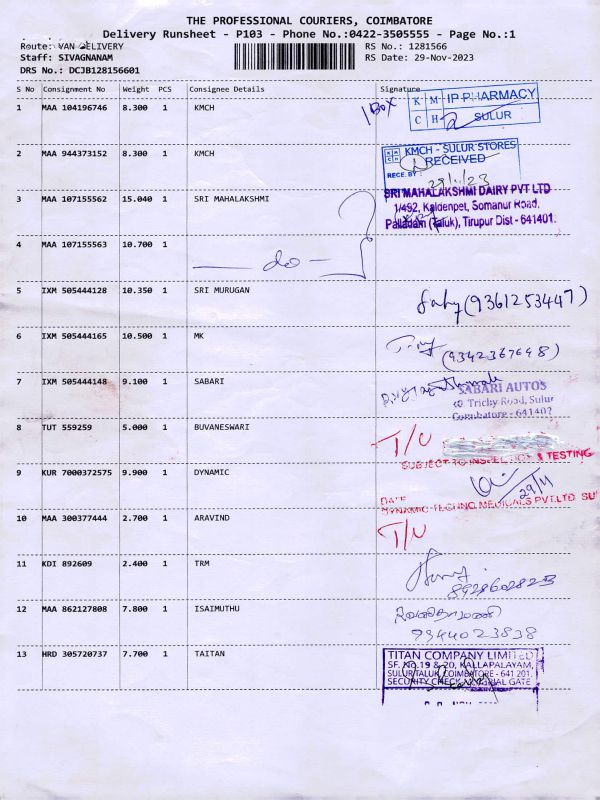 THE PROFESSIONAL COURIERS, COIMBATORE
Delivery Runsheet - P103 - Phone No.:0422-3505555 - Page No.:1
Route: VAN DELIVERY
RS No.: 1281566
Staff: SIVAGNANAM
RS Date: 29-Nov-2023
DRS No.: DCJB128156601
S No Consignment No Weight PCS Consignee Details Signature
1 MAA 104196746 8.300 1 KMCH
1 Box
K M C H IP PHARMACY
SULUR
2 MAA 944373152 8.300 1 KMCH
KMCH - SULUR STORES
RECEIVED
RECE. BY
29/11/23
3 MAA 107155562 15.040 1 SRI MAHALAKSHMI
SRI MAHALAKSHMI DAIRY PVT LTD
1/492, Kaldenpet, Somanur Road,
Palladam (Taluk), Tirupur Dist - 641401.
4 MAA 107155563 10.700 1
do
5 IXM 505444128 10.350 1 SRI MURUGAN
(9361253447)
6 IXM 505444165 10.500 1 MK
(9342367698)
7 IXM 505444148 9.100 1 SABARI
SABARI AUTOS
Trichy Road, Sulur
Coimbatore - 641402
8 TUT 559259 5.000 1 BUVANESWARI
T/U
SUBJECT TO INSPECTION & TESTING
9 KUR 7000372575 9.900 1 DYNAMIC
29/11
DATE
DYNAMIC TECHNO MEDICALS PVT.LTD SU
10 MAA 300377444 2.700 1 ARAVIND
T/U
11 KDI 892609 2.400 1 TRM
8928602823
12 MAA 862127808 7.800 1 ISAIMUTHU
9344023838
13 HRD 305720737 7.700 1 TAITAN
TITAN COMPANY LIMITED
SF. NO.19 & 20, KALLAPALAYAM,
SULUR TALUK, COIMBATORE - 641 201.
SECURITY CHECK MATERIAL GATE